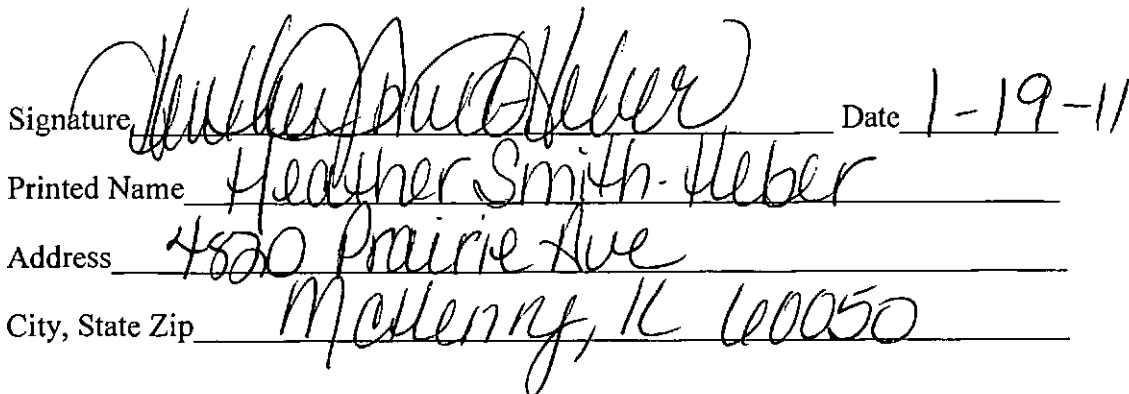 Signature Heather Smith-Heber Date 1-19-11
Printed Name Heather Smith-Heber
Address 4820 Prairie Ave
City, State Zip McHenry, IL 60050